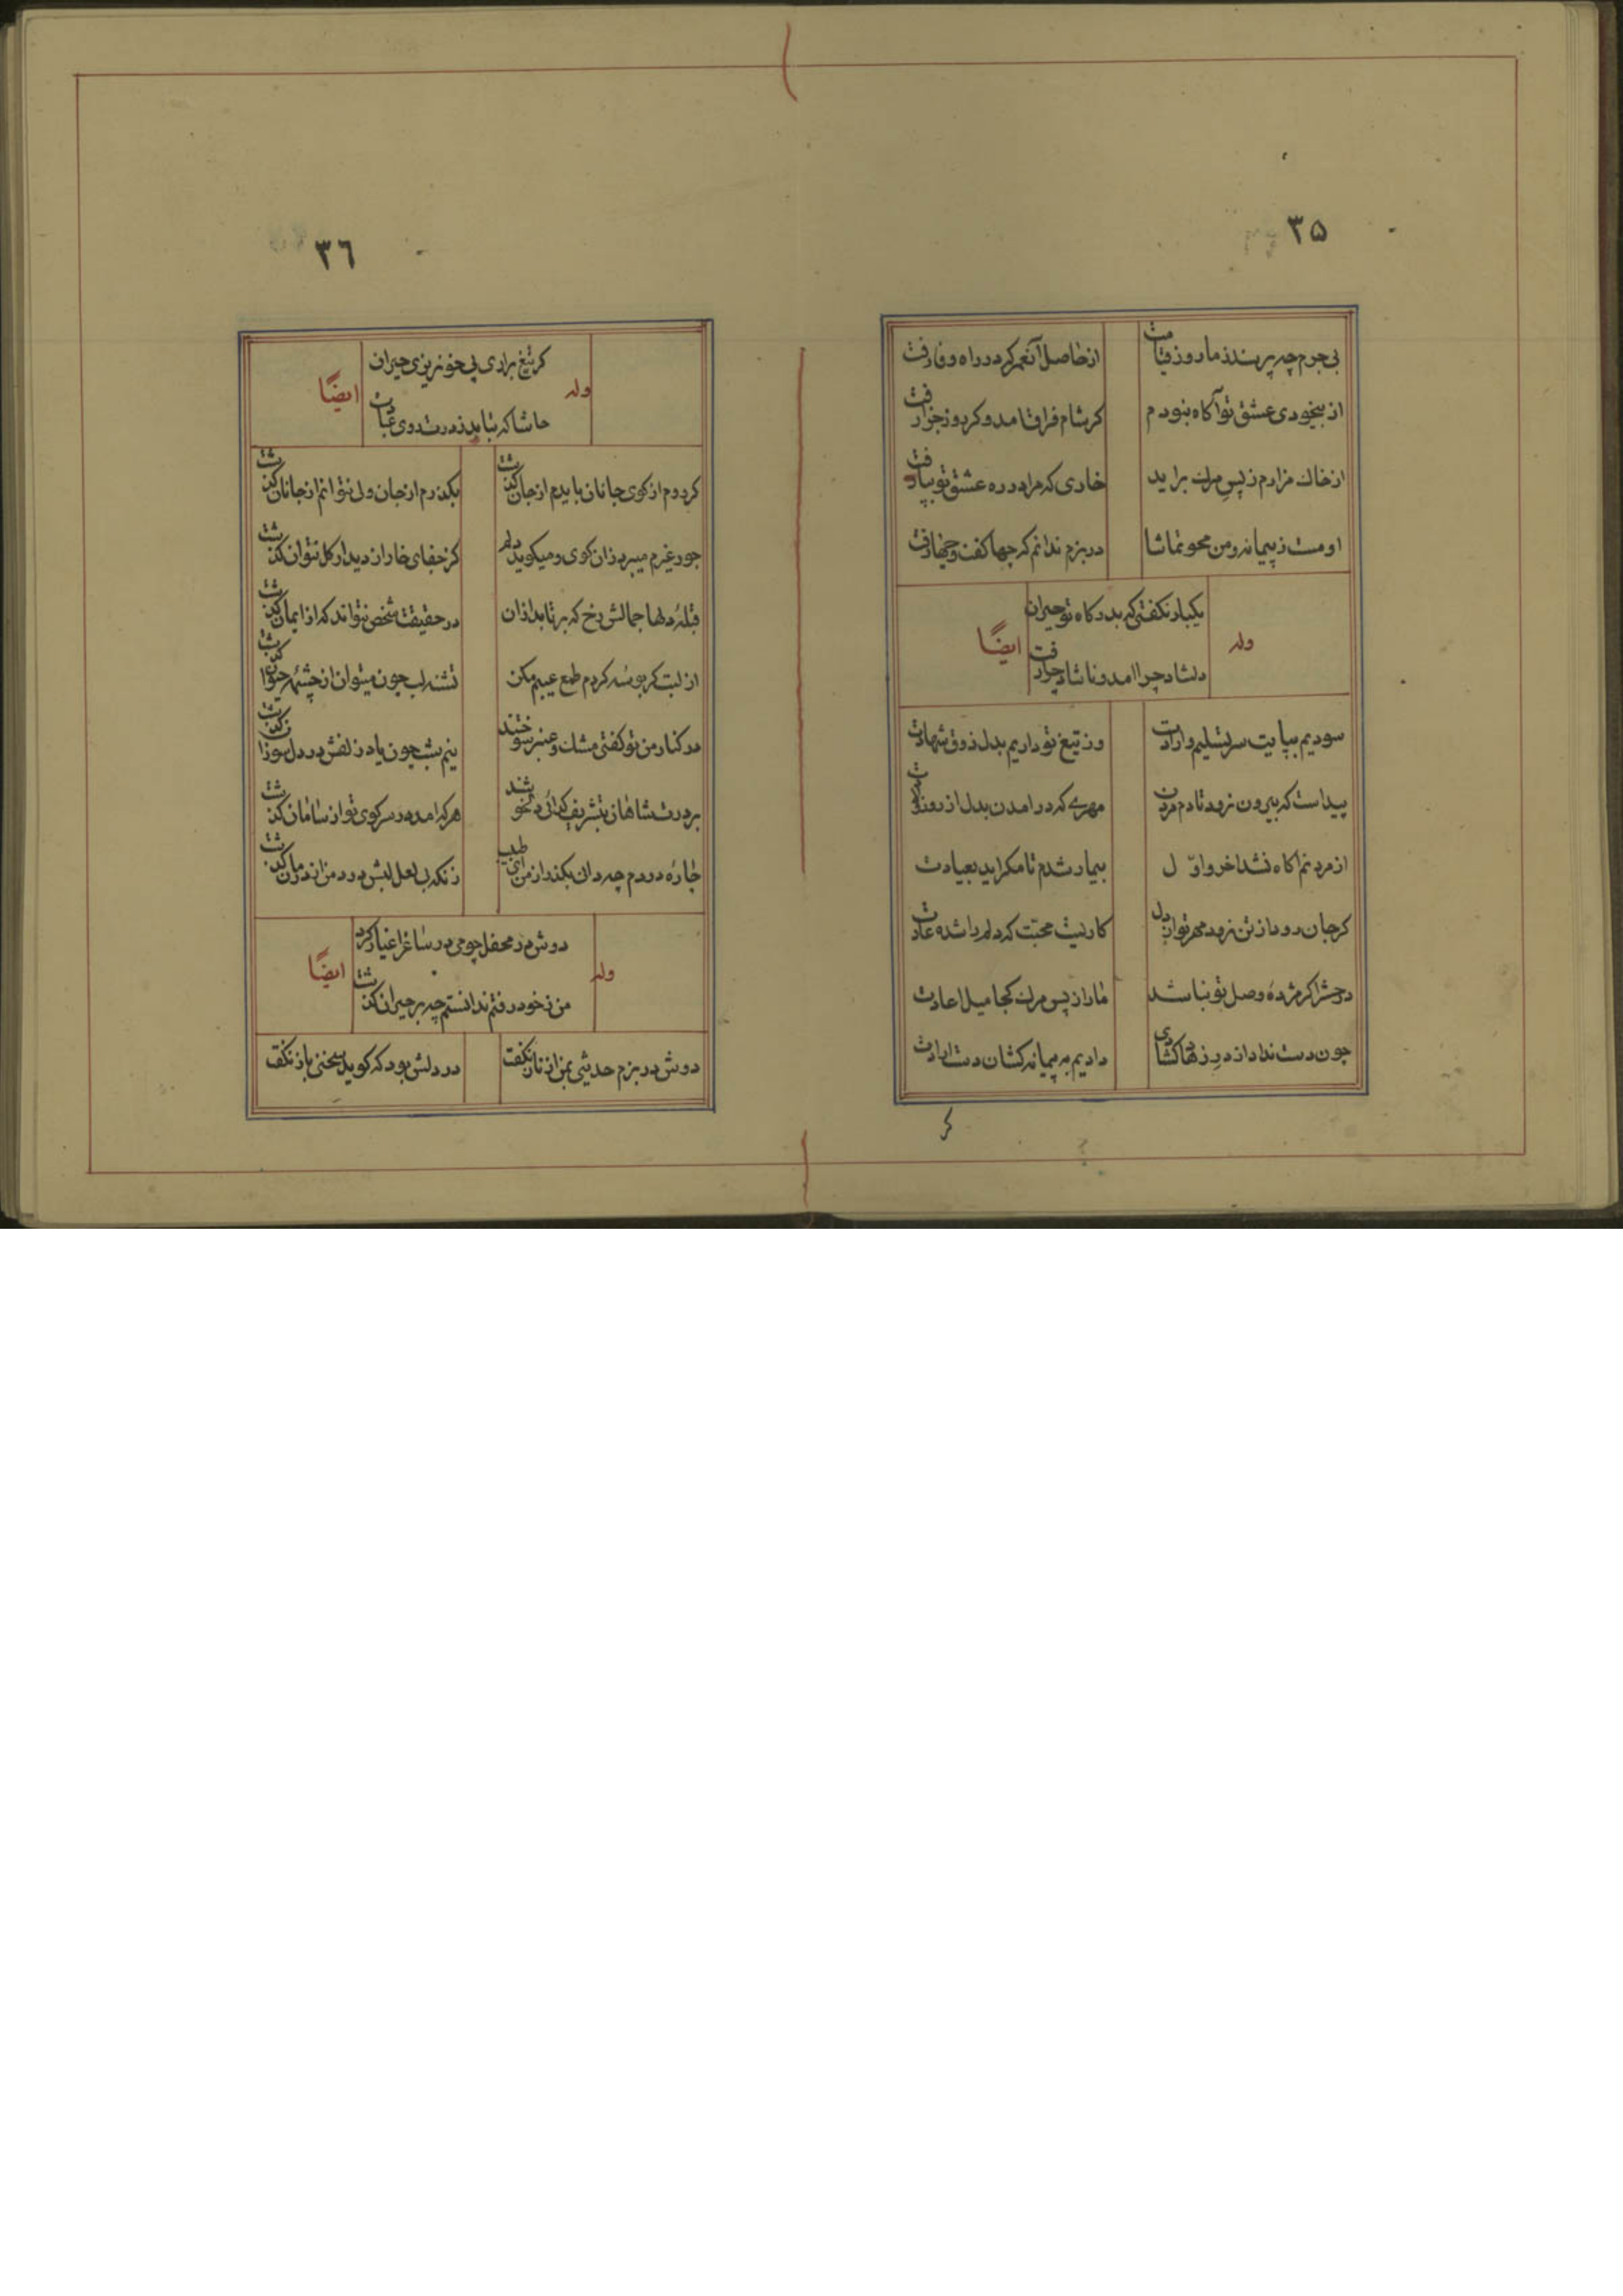 ۳۵
بی جرم چه پرسند ز ما روز قیامت
از حاصل آن عمر که در راه وفا رفت
از بیخودی عشق تو آگاه نبودم
کز شام فراق امد و کی روز جزا رفت
از خاك مزارم ز پس مرك براید
خاری که مرا در ره عشق تو بپا رفت
او مست ز پیمانه و من محو تماشا
در بزم ندانم که چها کفت و چها رفت
وله
یکبار نکفتی که بدرکاه تو حیران
دلشاد چرا امد و ناشاد چرا رفت
ایضًا
سودیم بپایت سر تسلیم و ارادت
وز تیغ تو داریم بدل ذوق شهادت
پیداست که بیرون نرود تا دم مردن
مهری که در امدن بدل از روز ولادت
از مردنم اکاه نشد اخر و اوّل
بیمار شدم تا مکر اید بعیادت
کر جان رود از تن نرود مهر تو از دل
کاریست محبّت که دلم را شده عادت
در حشر اکر مژدهٔ وصل تو نباشد
ما را ز پس مرك کجا میل اعادت
چون دست نداد از در زهاد کشادی
دادیم به پیمانه کشان دست ارادت
کر
۳٦
وله
کر تیغ براری پی خونریزی حیران
حاشا که بتابد ز درت روی عبادت
ایضًا
کر روم از کوی جانان بایدم از جان کذشت
بکذرم از جان ولی نتوانم از جانان کذشت
جور غیرم میبرد زان کوی و میکوید دلم
کز جفای خار از دیدار کل نتوان کذشت
قبلهٔ دلها جمالش رخ که برتابد ازان
در حقیقت شخص نتواند که از ایمان کذشت
از لبت کر بوسه کردم طمع عیبم مکن
تشنه لب چون میتوان از چشمهٔ حیوان کذشت
در کنار من تو کفتی مشك و عنبر سوختند
نیم شب چون یاد زلفش در دل سوزان کذشت
بر درت شاهان بتشریف کدائی دلخوشند
هر که امد در سر کوی تو از سامان کذشت
چارهٔ دردم چه دانی بکذر از من ای طبیب
زنکه بی لعل لبش درد من از درمان کذشت
وله
دوش در محفل چو می در ساغر اغیار کرد
من ز خود رفتم ندانستم چه بر حیران کذشت
ایضًا
دوش در بزم حدیثی بمن از ناز نکفت
در دلش بود که کوید سخنی باز نکفت